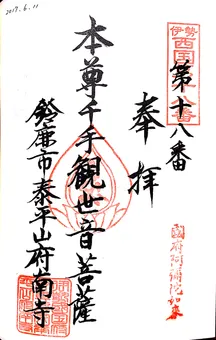 2017.6.11
伊勢
西国
第十八番
奉拝
本尊千手観世音菩薩
鈴鹿市泰平山府南寺
国府阿弥陀如来